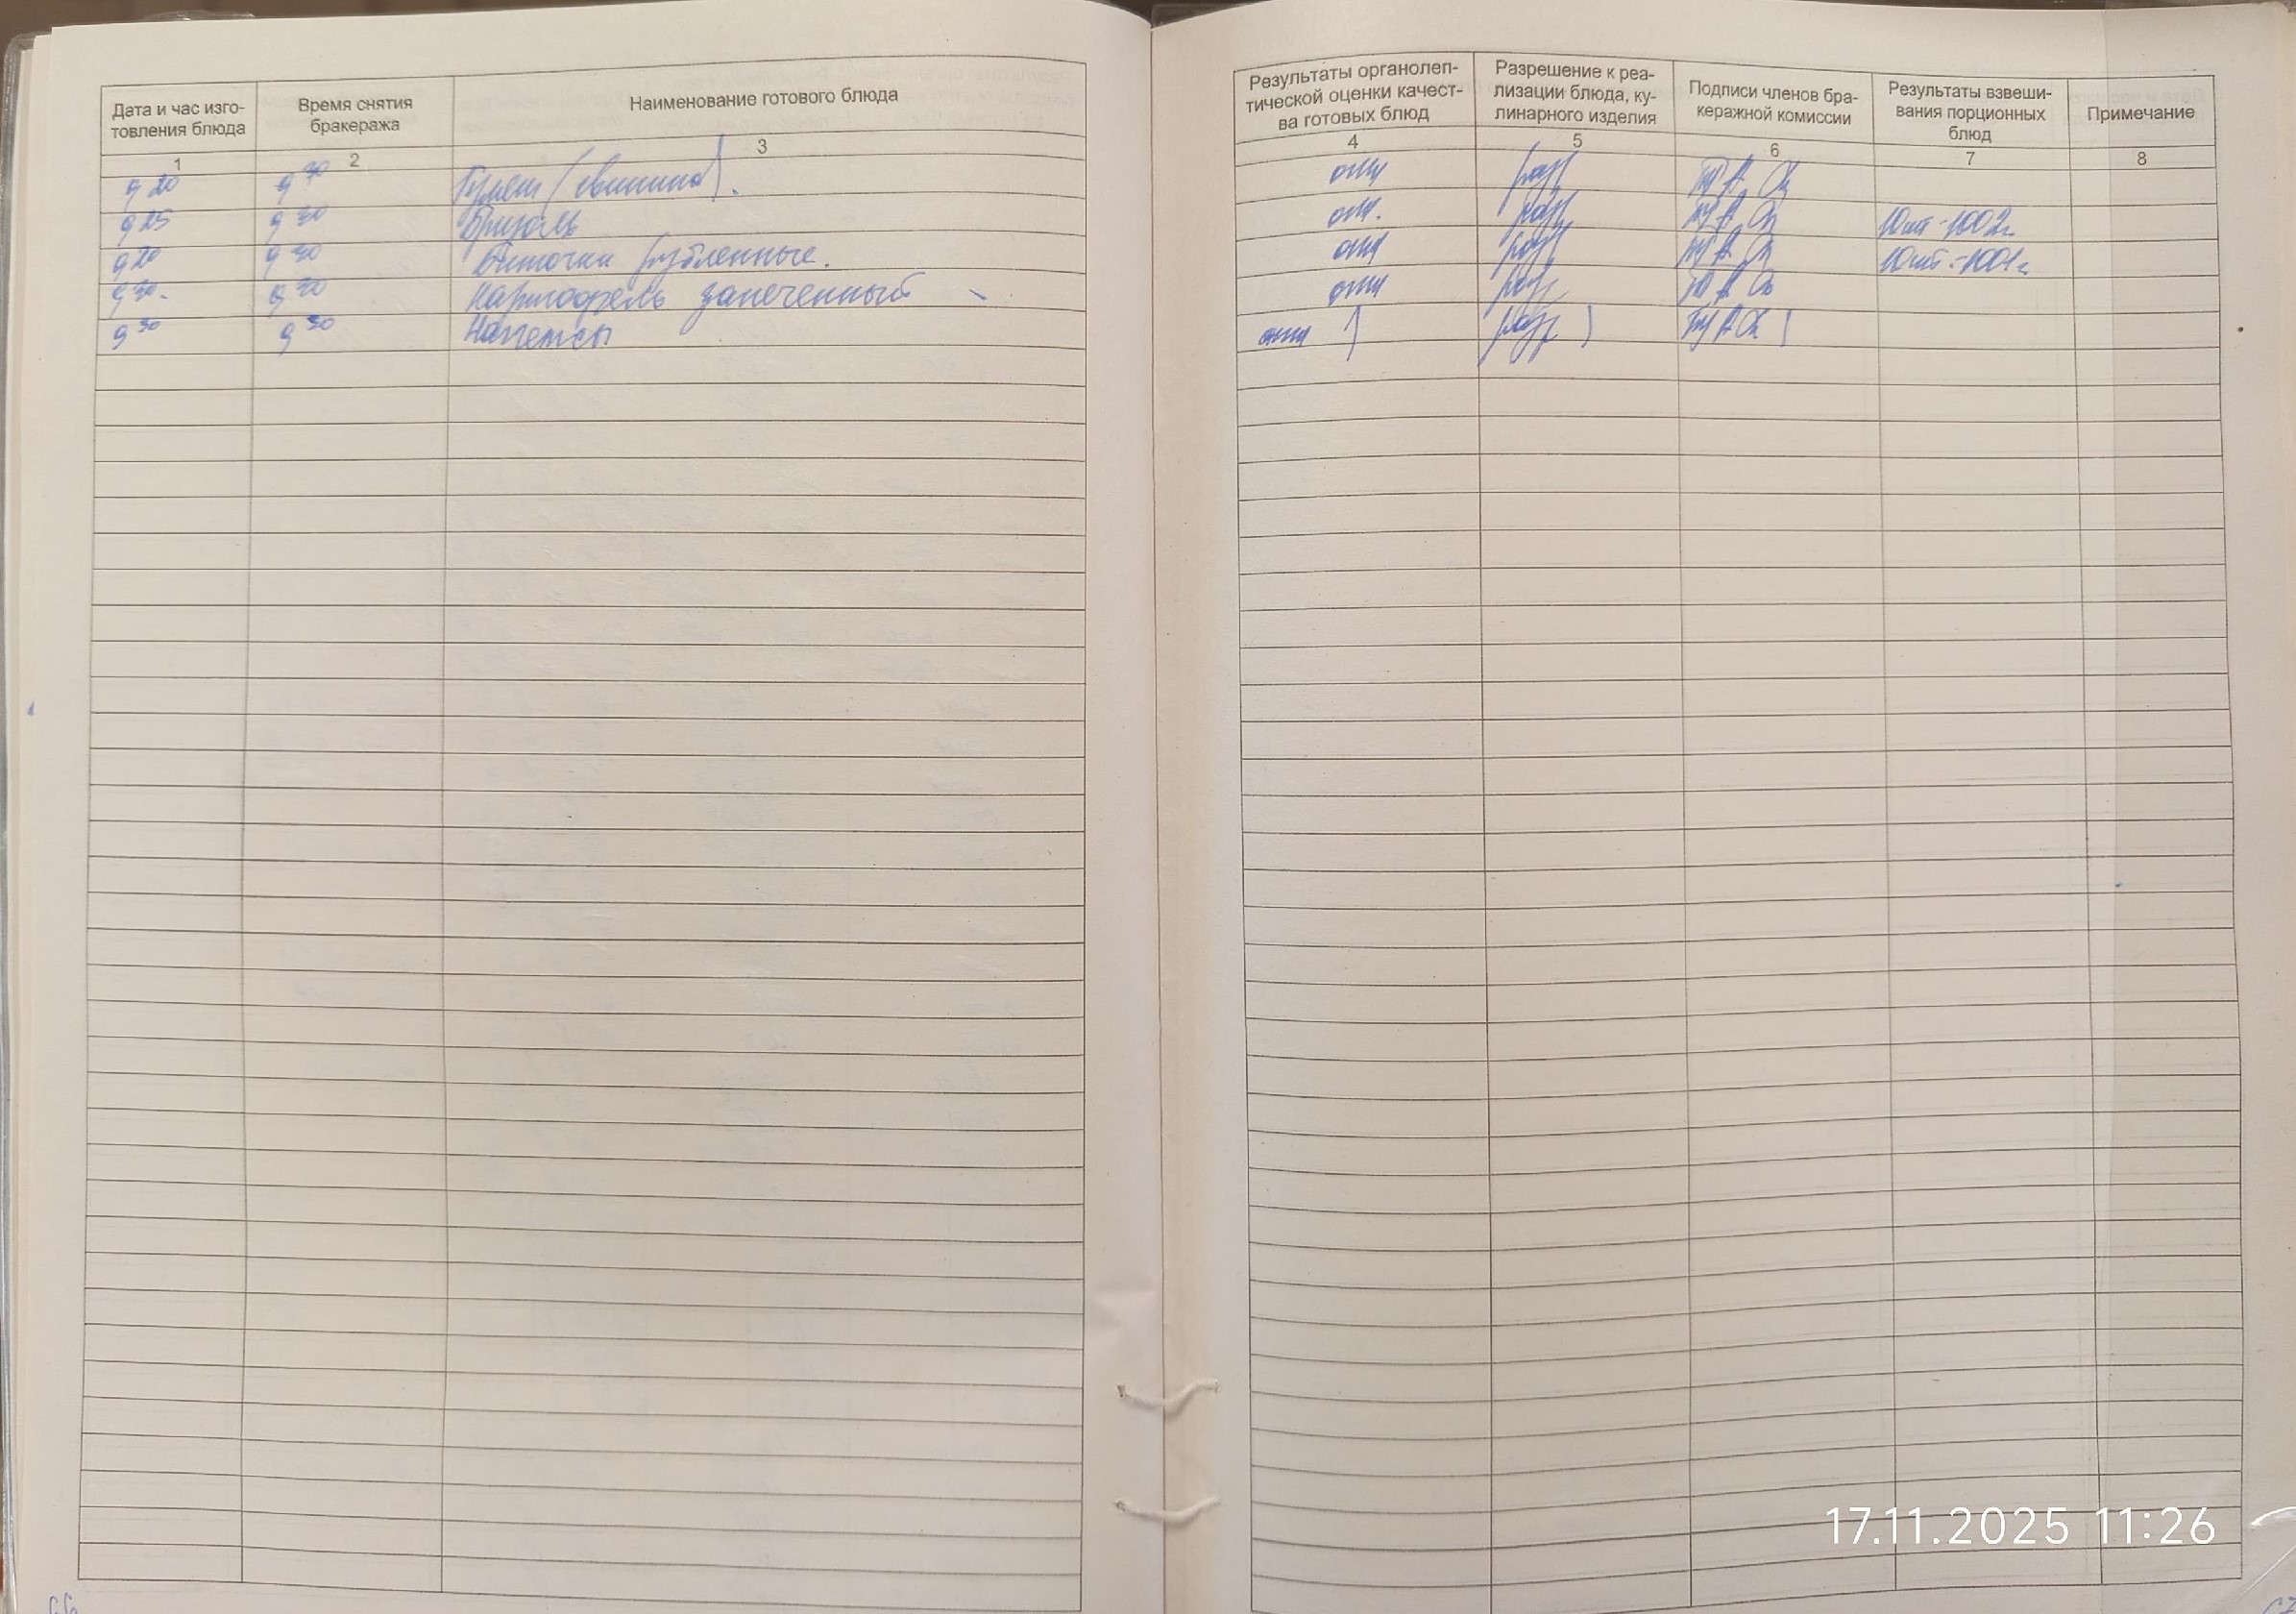 Дата и час изго-
товления блюда
Время снятия
бракеража
Наименование готового блюда
1
2
3
9 20
9 30
Гуляш (свинина).
9 25
9 30
Бризоль
9 20
9 30
Биточки рубленные.
9 30.
9 30
Картофель запеченный
9 30
9 30
Наггетсы
Результаты органолеп-
тической оценки качест-
ва готовых блюд
Разрешение к реа-
лизации блюда, ку-
линарного изделия
Подписи членов бра-
керажной комиссии
Результаты взвеши-
вания порционных
блюд
Примечание
4
5
6
7
8
отл
разр
отл.
разр
10шт-1002г
отл
разр
10шт.-1001г
отл
разр
отл
разр
17.11.2025 11:26